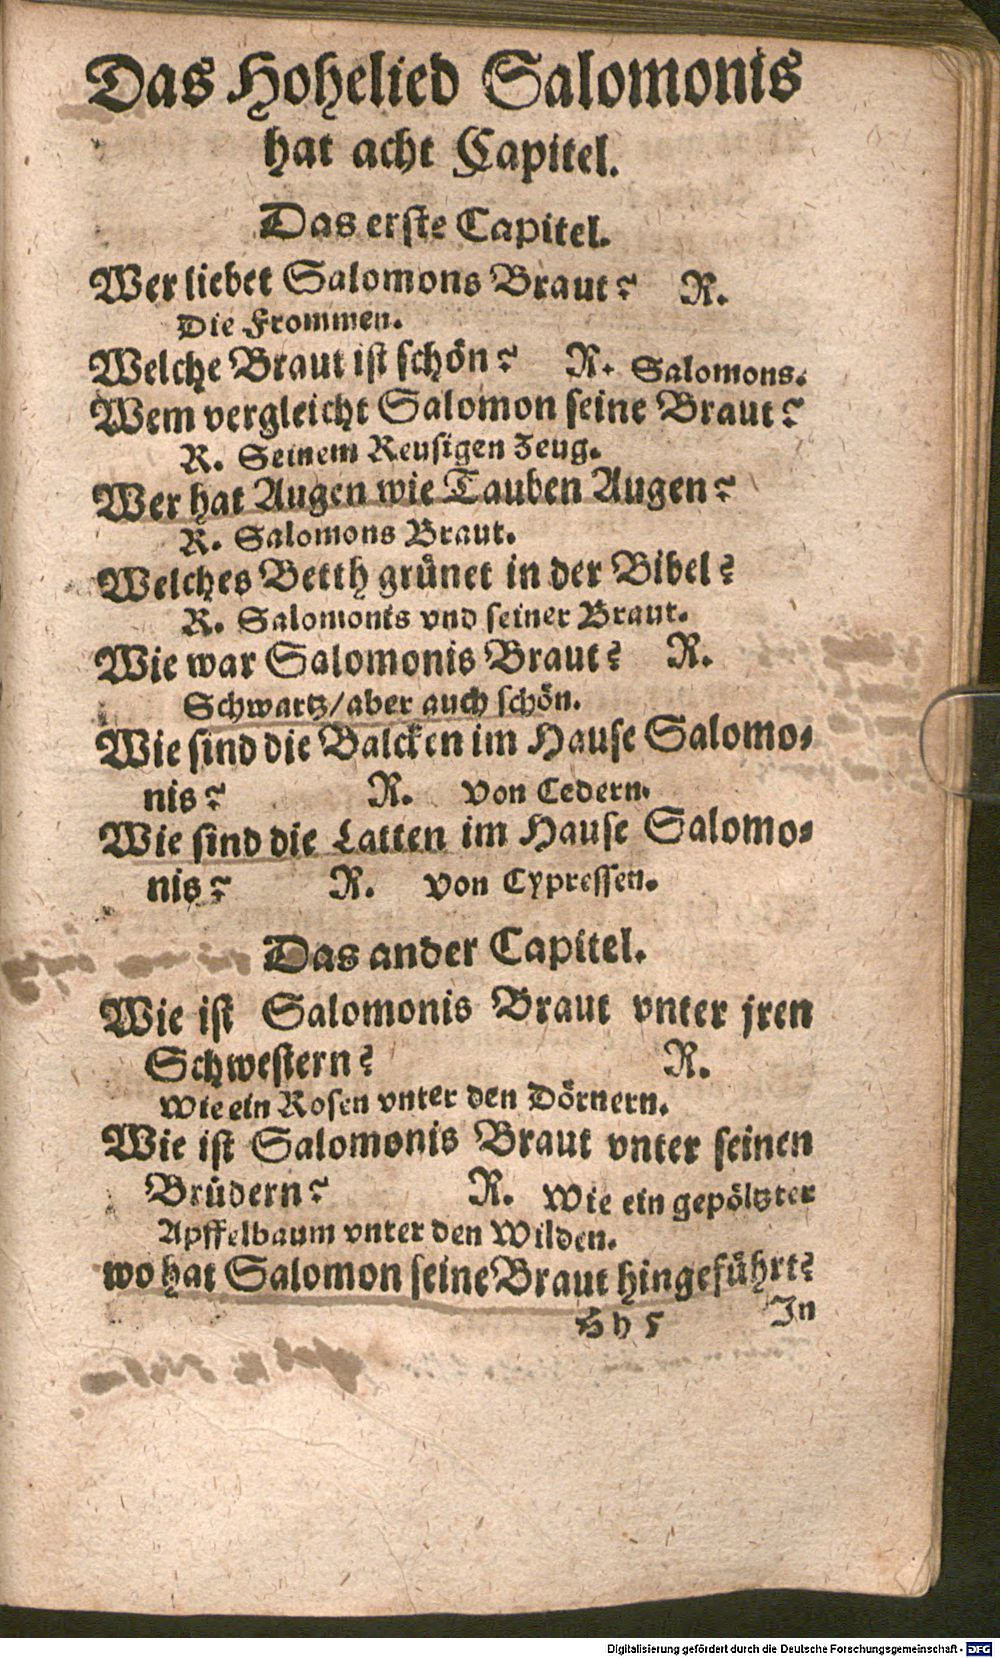 Das Hohelied Salomonis
hat acht Capitel.
Das erste Capitel.
Wer liebet Salomons Braut? R.
Die Frommen.
Welche Braut ist schön? R. Salomons.
Wem vergleicht Salomon seine Braut?
R. Seinem Reusigen Zeug.
Wer hat Augen wie Tauben Augen?
R. Salomons Braut.
Welches Betth grünet in der Bibel?
R. Salomonis vnd seiner Braut.
Wie war Salomonis Braut? R.
Schwartz/aber auch schön.
Wie sind die Balcken im Hause Salomo⸗
nis? R. Von Cedern.
Wie sind die Latten im Hause Salomo⸗
nis? R. Von Cypressen.
Das ander Capitel.
Wie ist Salomonis Braut vnter jren
Schwestern? R.
Wie ein Rosen vnter den Dörnern.
Wie ist Salomonis Braut vnter seinen
Brüdern? R. Wie ein gepöltzter
Apffelbaum vnter den Wilden.
wo hat Salomon seine Braut hingeführt?
Hh 5 In
Digitalisierung gefördert durch die Deutsche Forschungsgemeinschaft - DFG